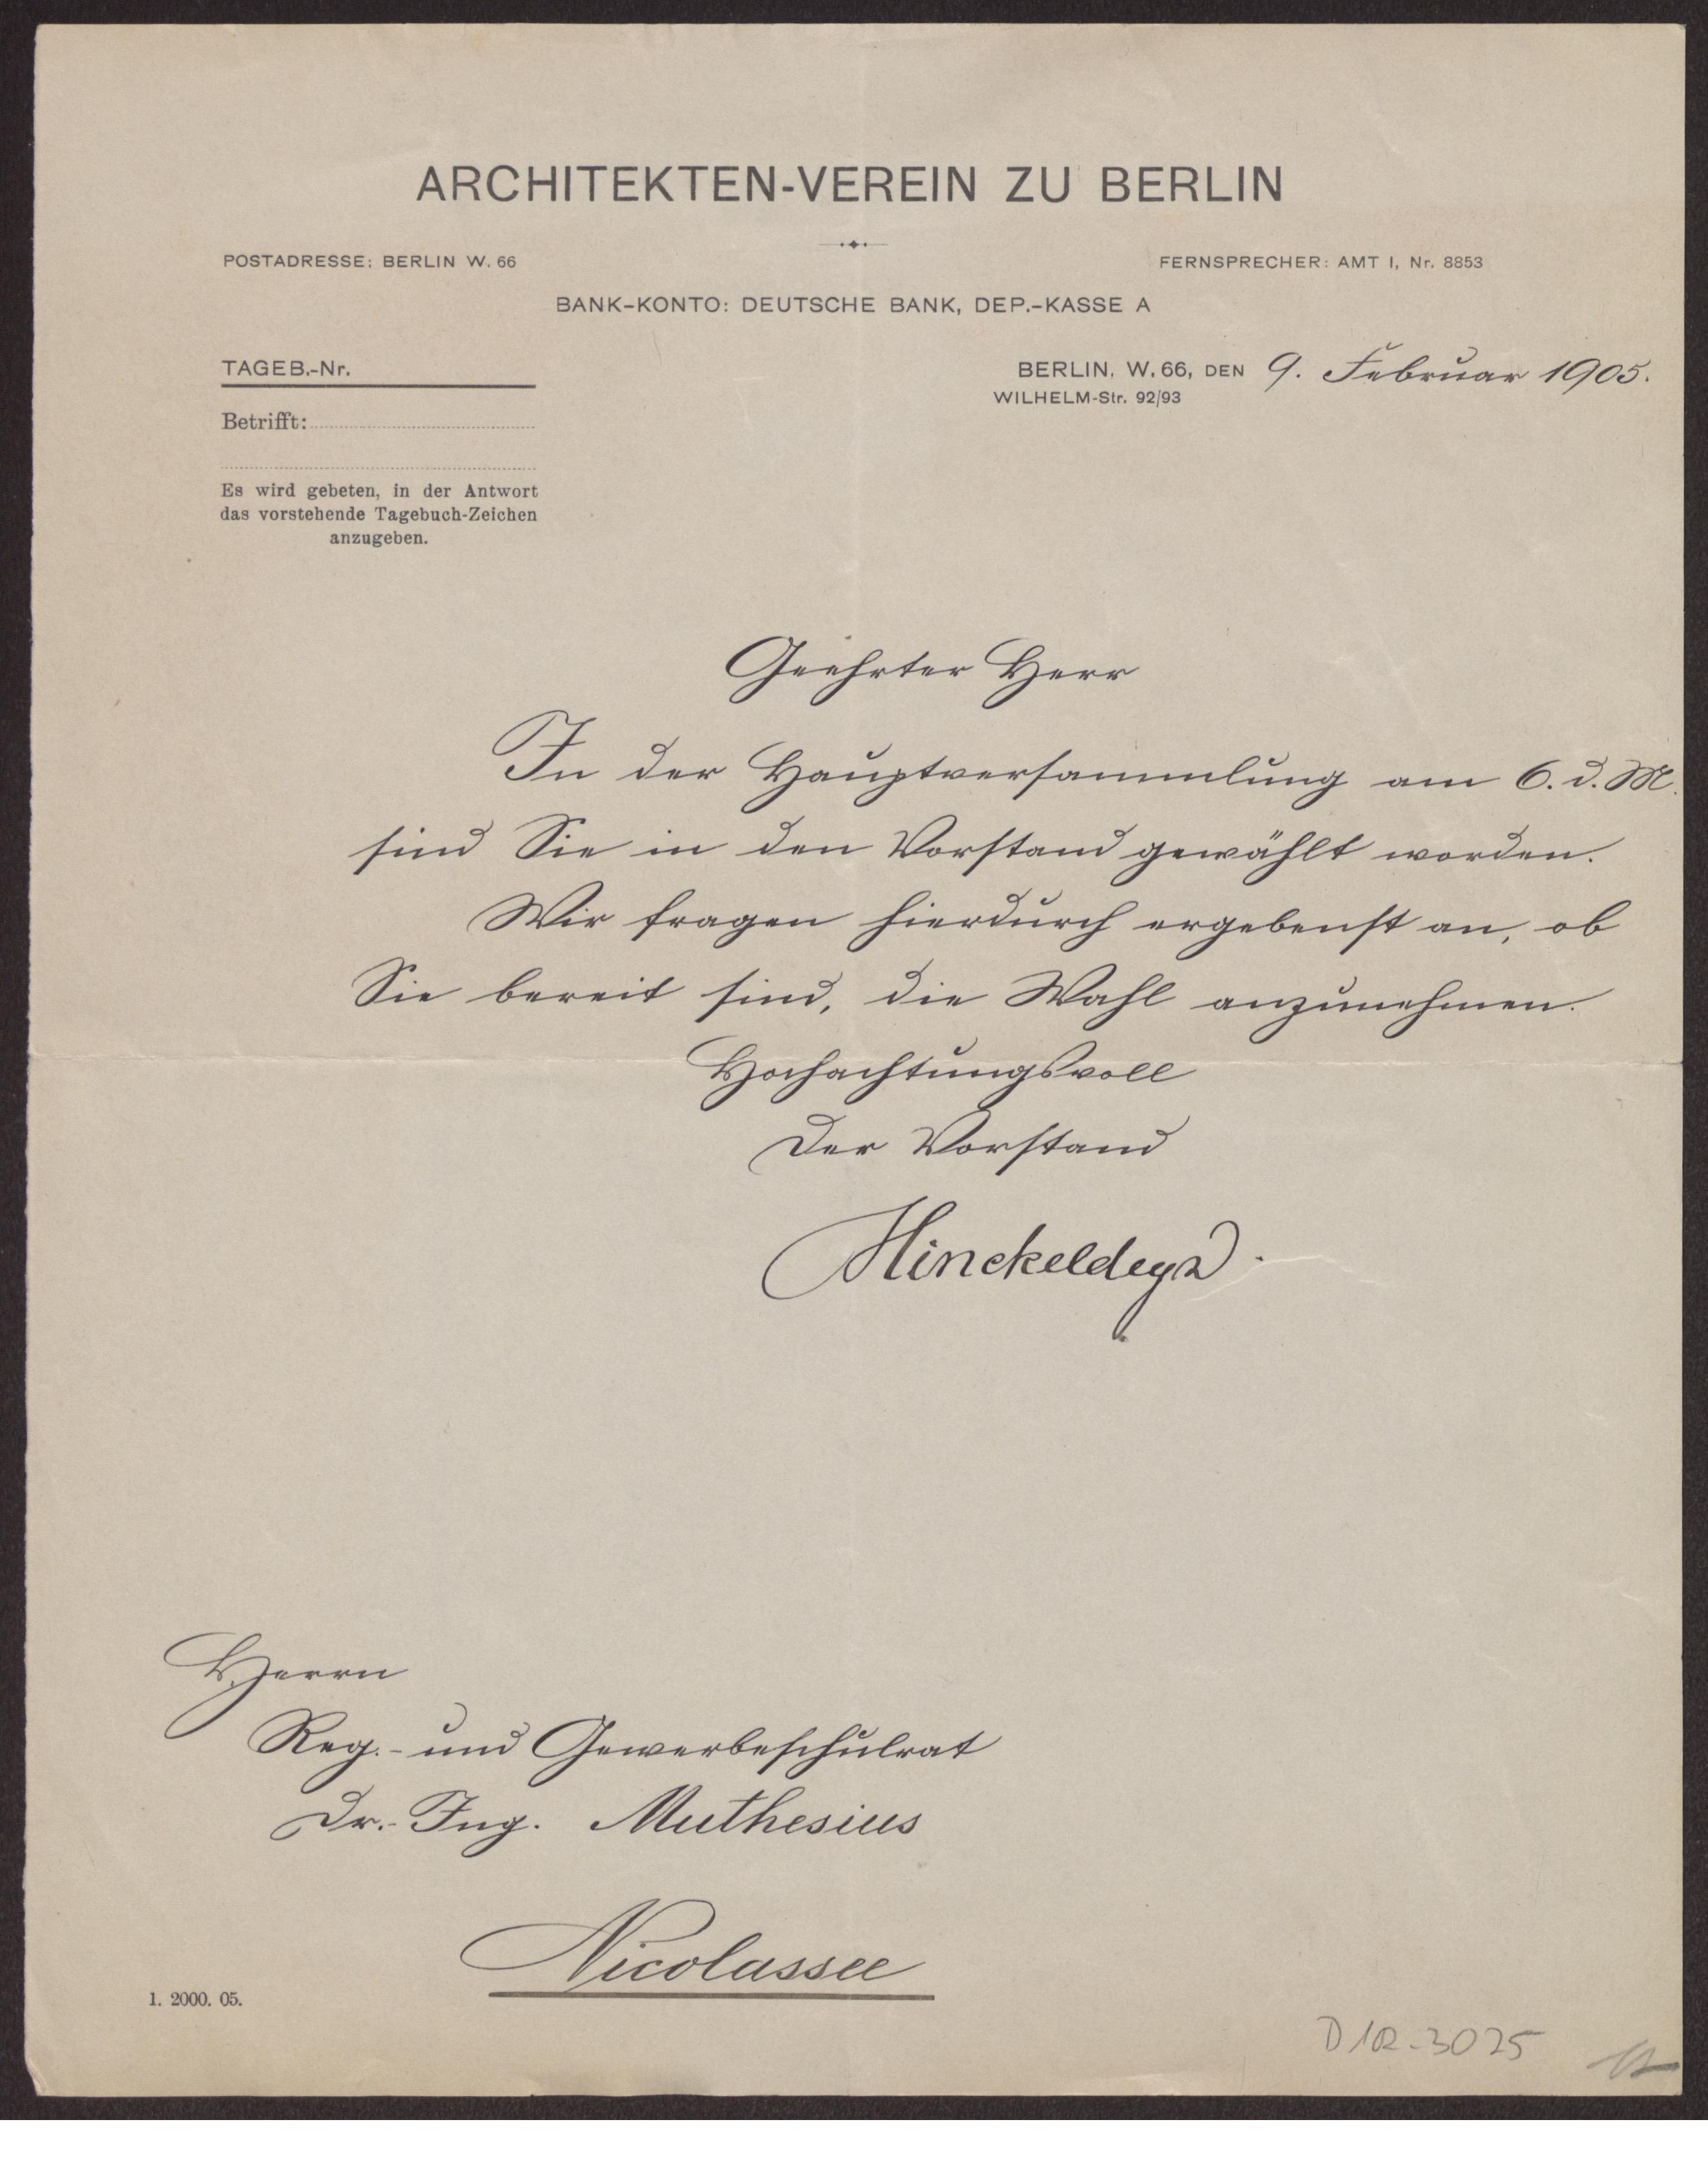 ARCHITEKTEN-VEREIN ZU BERLIN
POSTADRESSE: BERLIN W. 66
FERNSPRECHER: AMT I, Nr. 8853
BANK-KONTO: DEUTSCHE BANK, DEP.-KASSE A
TAGEB.-Nr.
BERLIN, W. 66, DEN 9. Februar 1905.
WILHELM-Str. 92/93
Betrifft:
Es wird gebeten, in der Antwort
das vorstehende Tagebuch-Zeichen
anzugeben.
Geehrter Herr
In der Hauptversammlung am 6. d. M.
sind Sie in den Vorstand gewählt worden.
Wir fragen hierdurch ergebenst an, ob
Sie bereit sind, die Wahl anzunehmen.
Hochachtungsvoll
Der Vorstand
Hinckeldeyn.
Herrn
Reg.- und Gewerbeschulrat
Dr.-Ing. Muthesius
Nicolassee
1. 2000. 05.
D 102-3025